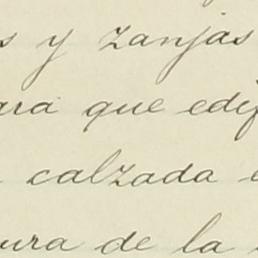 s y zanjas
ara que edif
calzada e
ura de la